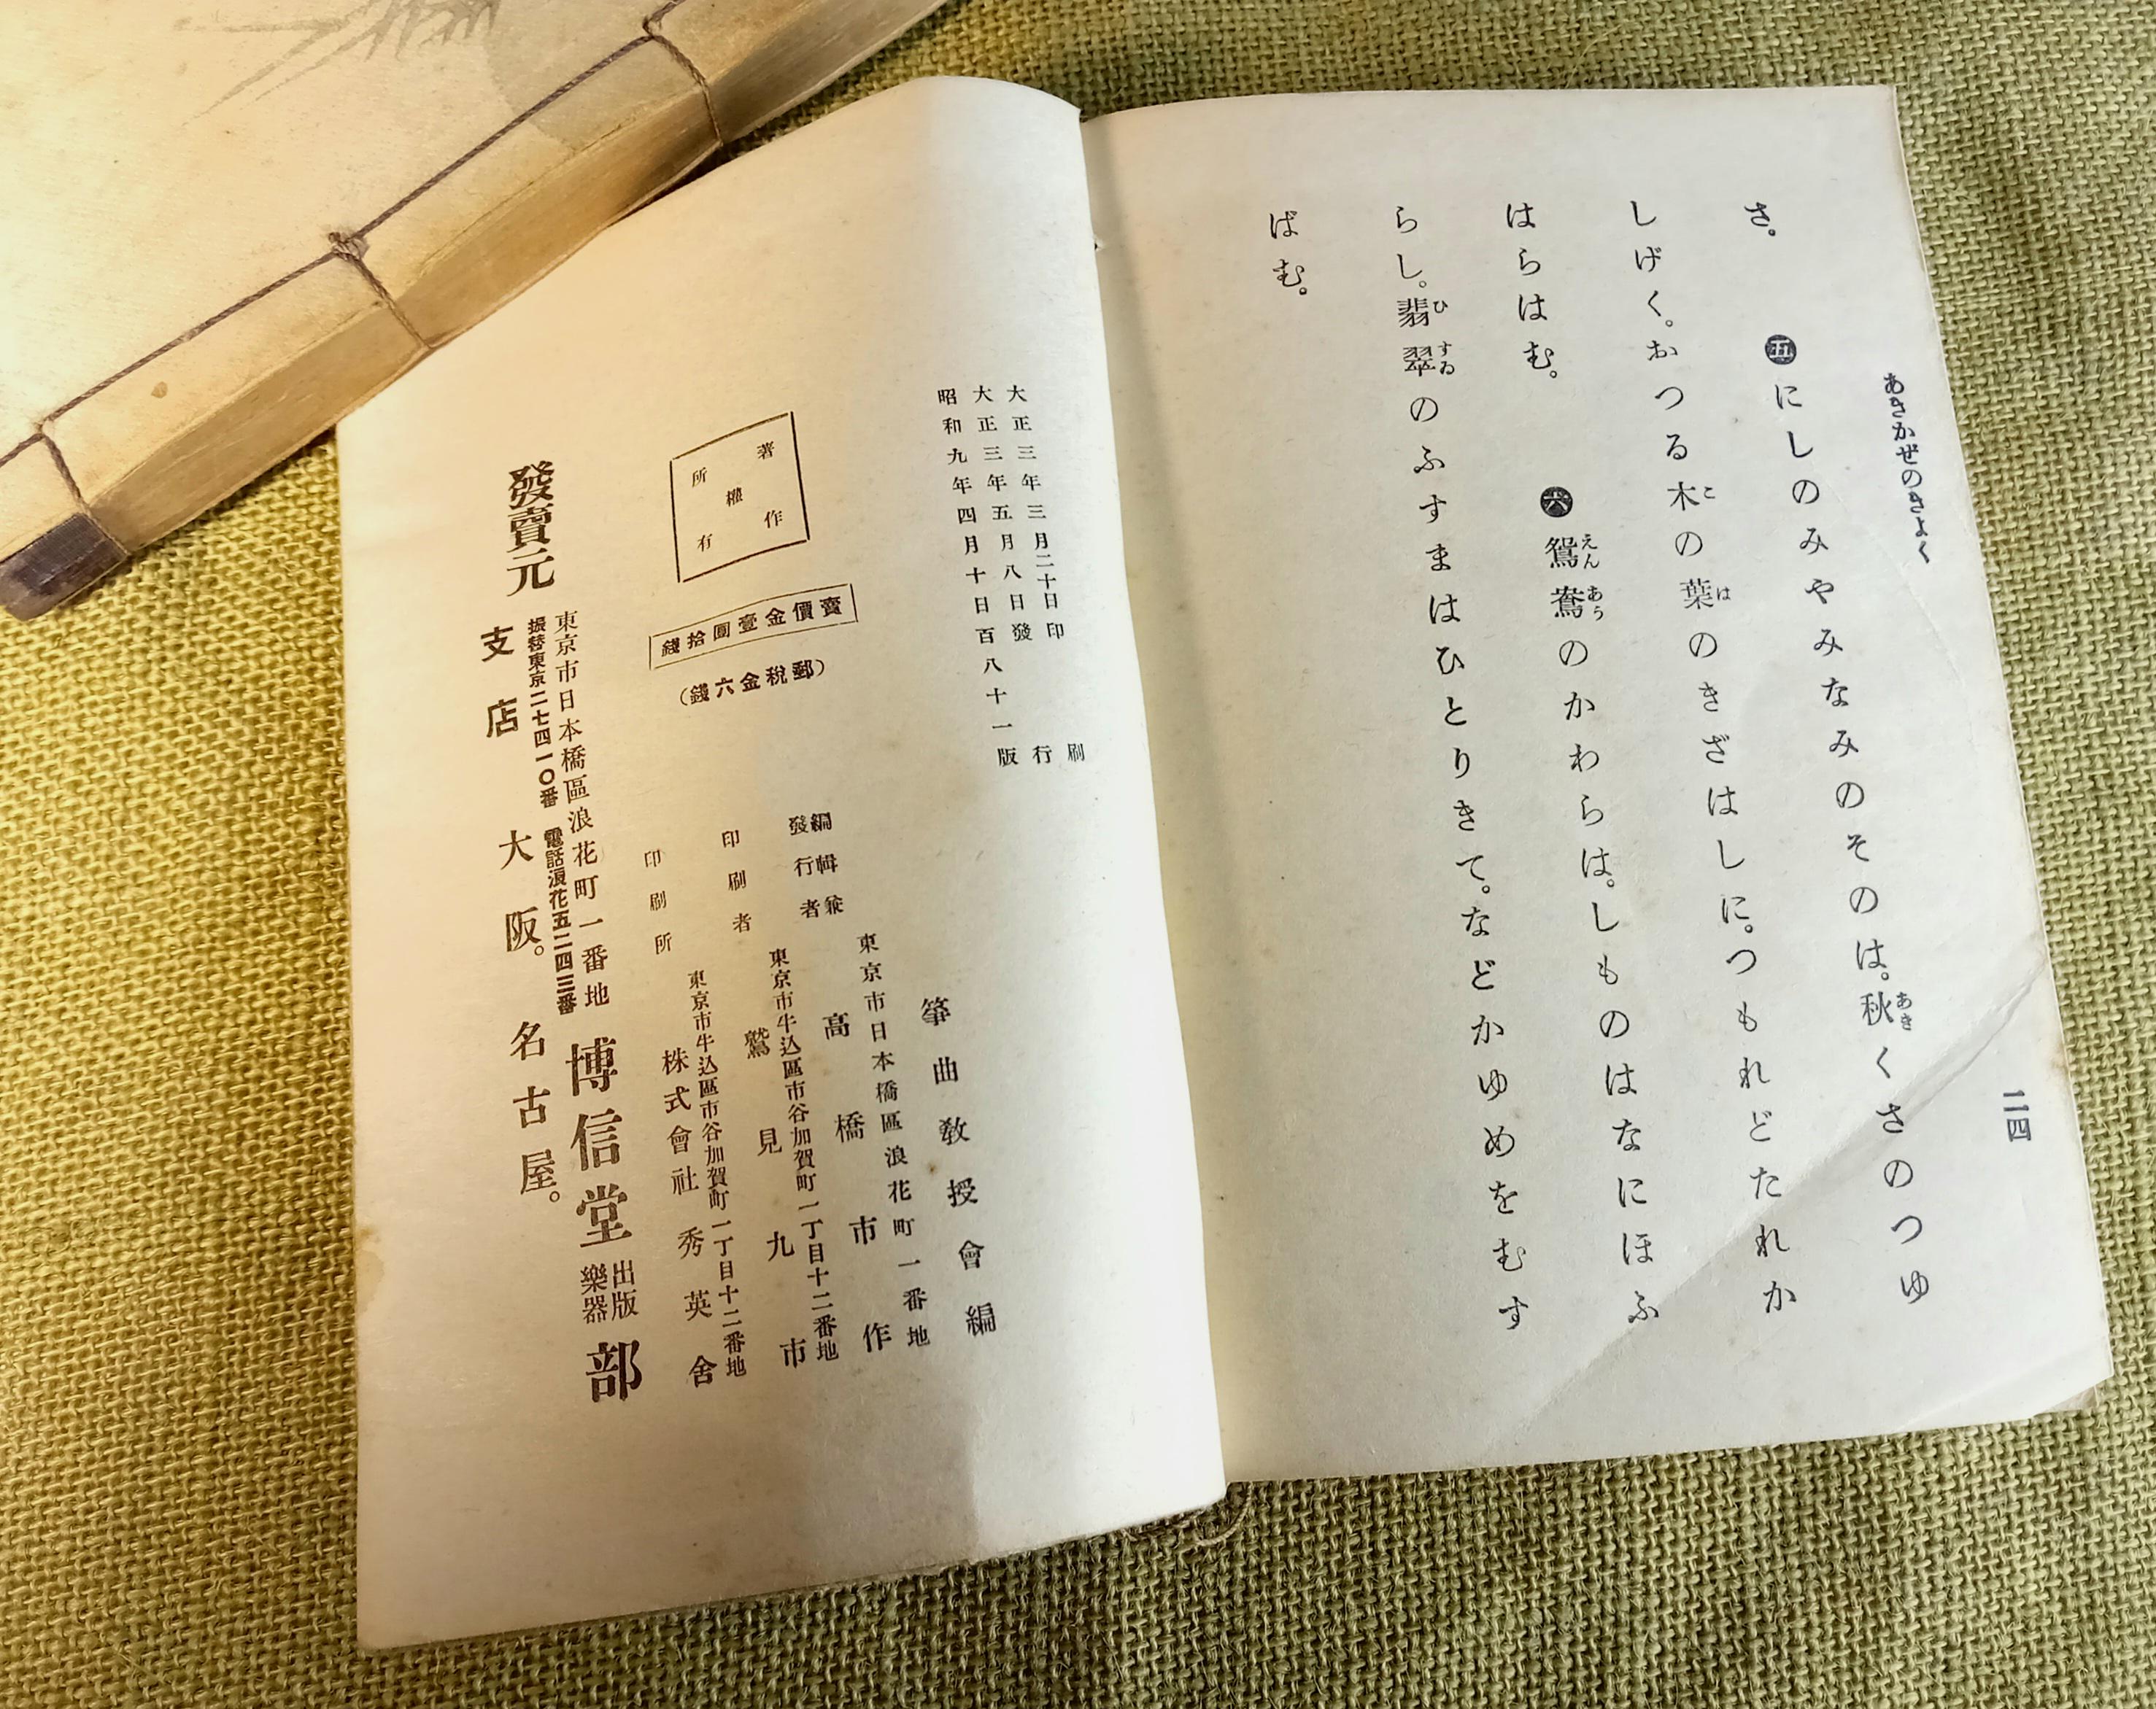 あきかぜのきよく
二四
さ。
五 にしのみやみなみのそのは。秋くさのつゆ
あき
しげく。おつる木の葉のきざはしに。つもれどたれか
こ
は
はらはむ。
六 鴛鴦のかわらは。しものはなにほふ
えんあう
らし。翡翠のふすまはひとりきて。などかゆめをむす
ひすゐ
ばむ。
大正三年三月二十日印刷
大正三年五月八日發行
昭和九年四月十日百八十一版
著作權所有
賣價金壹圓拾錢
(郵稅金六錢)
箏曲教授會編
編輯兼
發行者
東京市日本橋區浪花町一番地
高橋市作
印刷者
東京市牛込區市谷加賀町一丁目十二番地
鷲見九市
印刷所
東京市牛込區市谷加賀町一丁目十二番地
株式會社秀英舍
發賣元
東京市日本橋區浪花町一番地
博信堂
出版
樂器
部
振替東京二七四一〇番
電話浪花五二四三番
支店
大阪。名古屋。